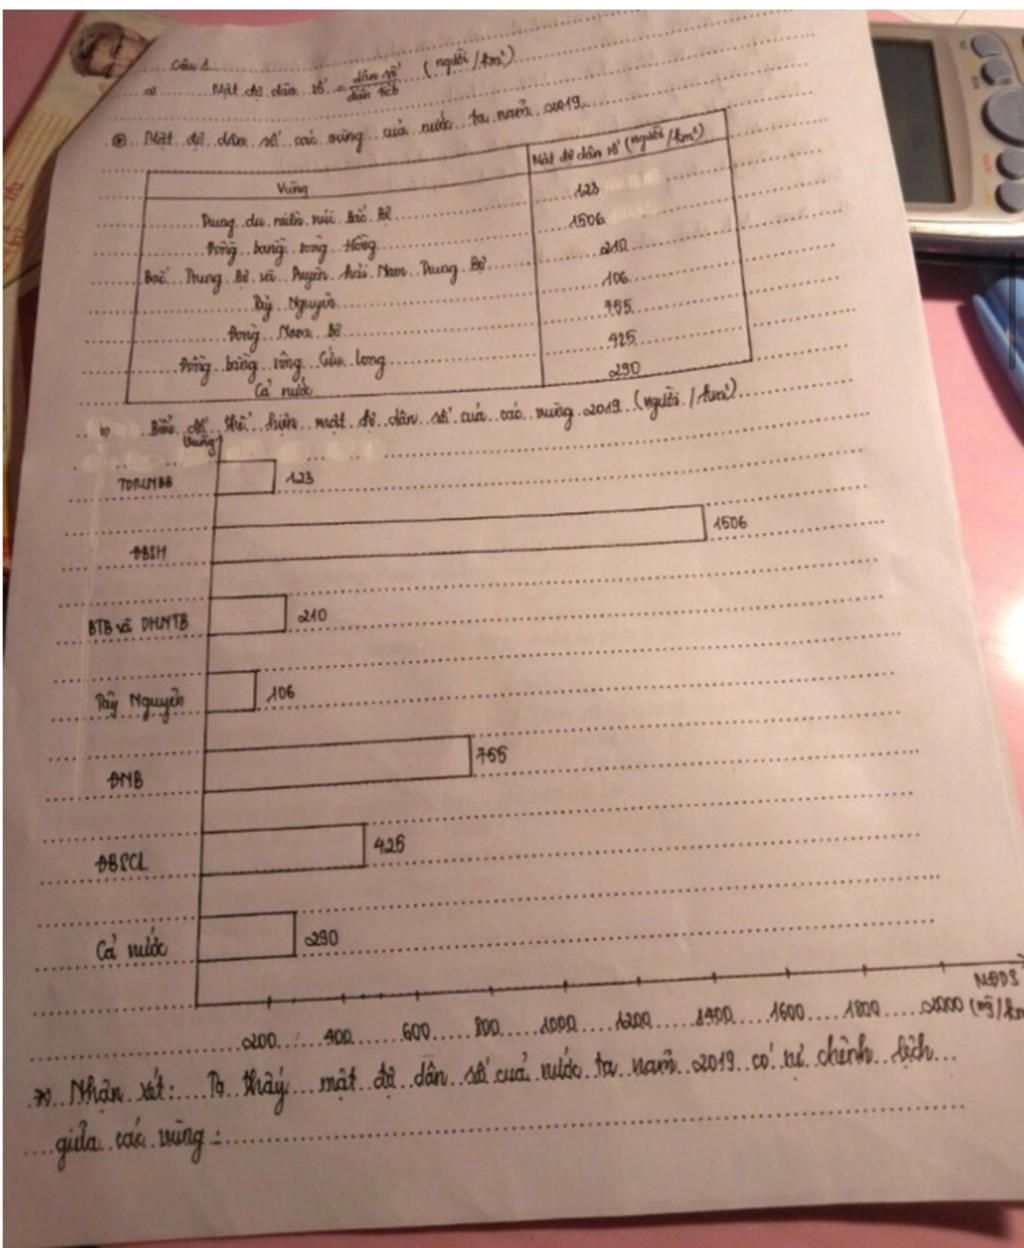 Câu 1
a) Mật độ dân số = dân số / diện tích (người/km²)
⊛ Mật độ dân số các vùng của nước ta năm 2019
Vùng Mật độ dân số (người/km²)
Trung du miền núi Bắc Bộ 123
Đồng bằng sông Hồng 1506
Bắc Trung Bộ và Duyên hải Nam Trung Bộ 210
Tây Nguyên 106
Đông Nam Bộ 755
Đồng bằng sông Cửu Long 425
Cả nước 290
b) Biểu đồ thể hiện mật độ dân số của các vùng 2019 (người/km²)
Vùng
TDMNBB 123
ĐBSH 1506
BTB và DHNTB 210
Tây Nguyên 106
ĐNB 755
ĐBSCL 425
Cả nước 290
200 400 600 800 1000 1200 1400 1600 1800 2000
MĐDS
(ng/km
* Nhận xét: Ta thấy mật độ dân số của nước ta năm 2019 có sự chênh lệch
giữa các vùng: